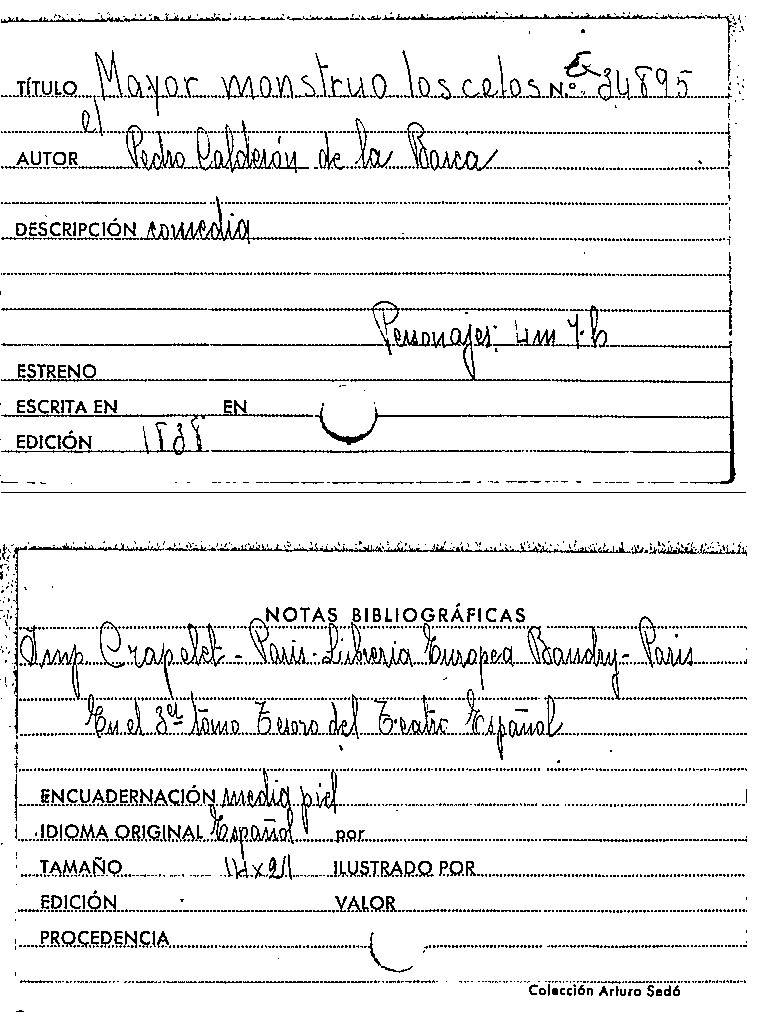 TÍTULO Mayor monstruo los celos Nº 34895
el
AUTOR Pedro Calderón de la Barca
DESCRIPCIÓN comedia
Personajes: 4m 7-h
ESTRENO
ESCRITA EN EN
EDICIÓN 1838
NOTAS BIBLIOGRÁFICAS
Imp Crapelet - Paris - Libreria Europea Baudry - Paris
En el 3er tomo Tesoro del Teatro Español
ENCUADERNACIÓN media piel
IDIOMA ORIGINAL Español por
TAMAÑO 14x21 ILUSTRADO POR
EDICIÓN VALOR
PROCEDENCIA
Colección Arturo Sedó